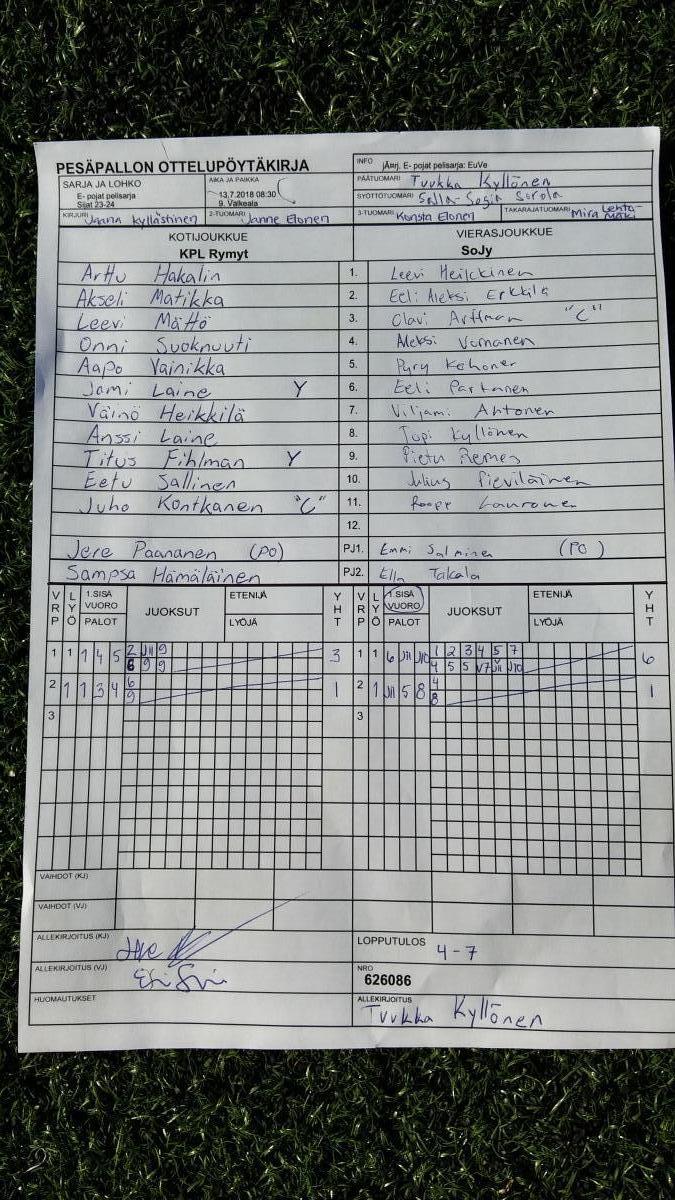 PESÄPALLON OTTELUPÖYTÄKIRJA
INFO jÄmrj. E- pojat pelisarja: EuVe
SARJA JA LOHKO
E- pojat pelisarja
Sijat 23-24
AIKA JA PAIKKA
13.7.2018 08:30
9. Valkeala
PÄÄTUOMARI Tuukka Kyllönen
SYÖTTÖTUOMARI Salla-Sofia Sorola
KIRJURI Jaana Kyllästinen
2-TUOMARI Janne Elonen
3-TUOMARI Konsta Elonen
TAKARAJATUOMARI Mira Lehto-
mäki
KOTIJOUKKUE
KPL Rymyt
VIERASJOUKKUE
SoJy
Arttu Hakalin 1. Leevi Heikkinen
Akseli Matikka 2. Eeli Aleksi Erkkilä
Leevi Mättö 3. Olavi Arffman "C"
Onni Suoknuuti 4. Aleksi Vornanen
Aapo Vainikka 5. Pyry Kohonen
Jami Laine Y 6. Eeli Partanen
Väinö Heikkilä 7. Viljami Ahtonen
Anssi Laine 8. Topi Kyllönen
Titus Fihlman Y 9. Pietu Remes
Eetu Sallinen 10. Julius Pieviläinen
Juho Kontkanen "C" 11. Roope Lauronen
12.
Jere Paananen (PO) PJ1. Emmi Salminen (PO)
Sampsa Hämäläinen PJ2. Ella Takala
VRP LYÖ 1.SISÄ VUORO PALOT JUOKSUT ETENIJÄ LYÖJÄ YHT
VRP LYÖ 1.SISÄ VUORO PALOT JUOKSUT ETENIJÄ LYÖJÄ YHT
1 1 1 4 5 2 J11 9 3
6 9 9
1 1 6 J11 J10 1 2 3 4 5 7 6
4 5 5 V7 J11 J10
2 1 1 3 4 6 1
9
2 1 J11 5 8 4 1
8
3
3
VAIHDOT (KJ)
VAIHDOT (VJ)
ALLEKIRJOITUS (KJ)
LOPPUTULOS 4-7
ALLEKIRJOITUS (VJ)
NRO
626086
HUOMAUTUKSET
ALLEKIRJOITUS
Tuukka Kyllönen